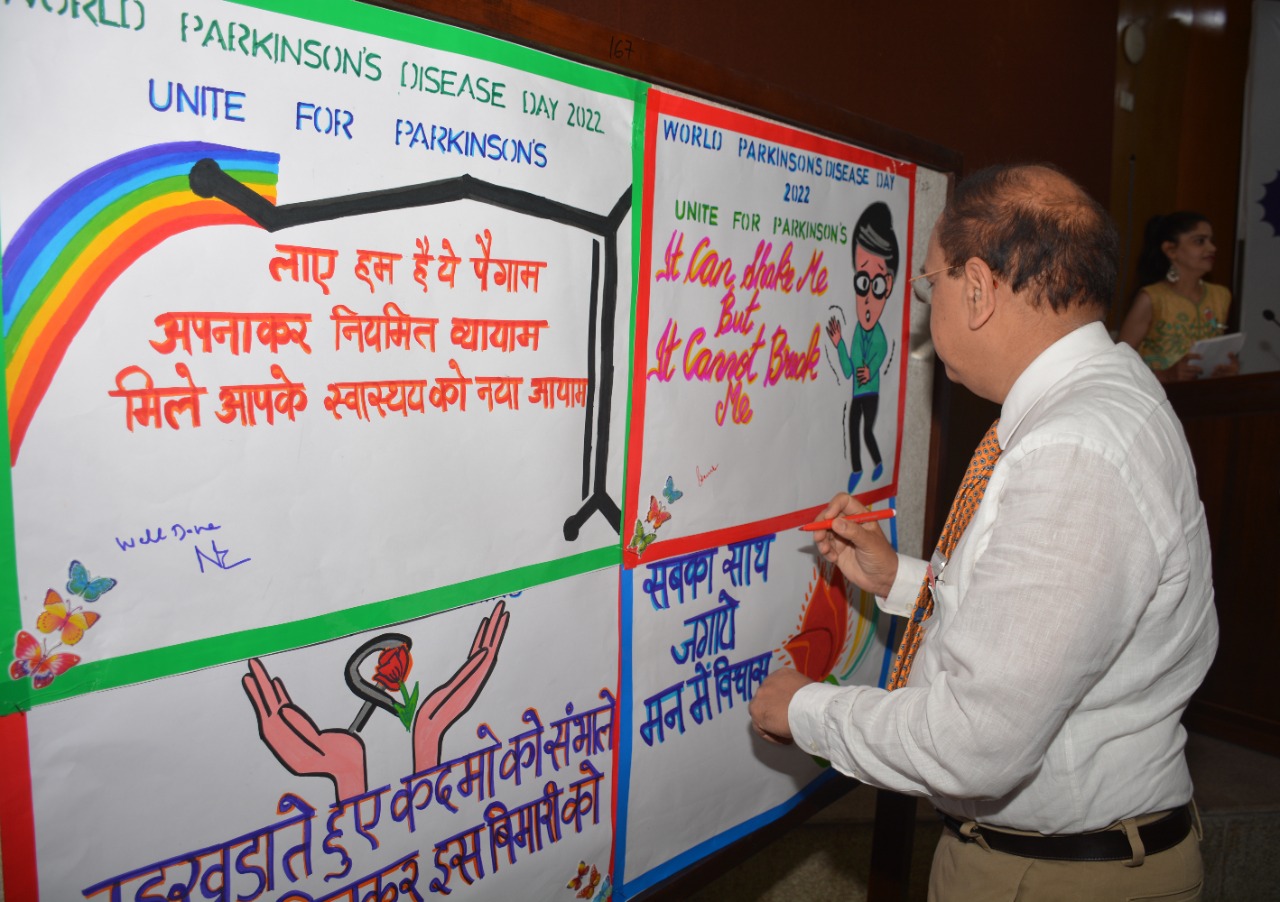 WORLD PARKINSON'S DISEASE DAY 2022
UNITE FOR PARKINSON'S
लाए हम है ये पैगाम
अपनाकर नियमित व्यायाम
मिले आपके स्वास्थय को नया आयाम
Well Done
167
WORLD PARKINSON'S DISEASE DAY
2022
UNITE FOR PARKINSON'S
It Can Shake Me
But
It Cannot Break
Me
लड़खड़ाते हुए कदमो को संभाले
इस बिमारी को
सबका साथ
जगाये
मन में विश्वास